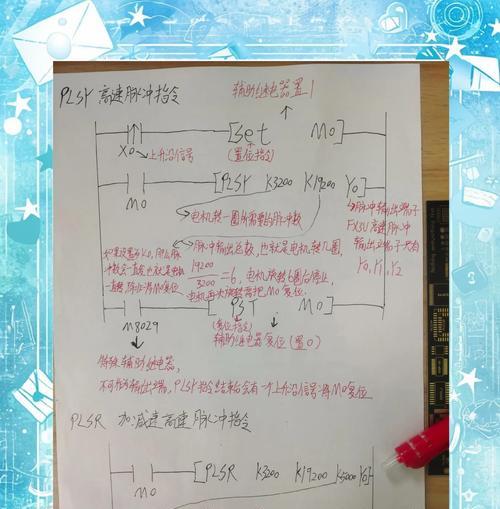 PLSY 高速脉冲指令
辅助继电器置1
[set M0]
X0 上升沿信号
(置位指令)
M0
[PLSY K3200 K19200 Y0]
电机转一圈所需要的脉冲数
脉冲输出端子
FX5U 高速脉冲
输出端子只有
Y0, Y1, Y2
脉冲输出总数,也就是电机转几圈,
如果设置为K0,那么脉
冲数会一直发
也就是电机
一直转,除非将M0复位
19200/3200=6,电机旋转6圈后停止,
电机再次旋转需把M0复位
[RST M0]
M8029
(复位指令)
辅助继电器复位(置0)
特殊辅助继电器,
不可为输出端,PLSY指令结束后会有一个上升沿信号将M0复位
PLSR 加减速高速脉冲指令
M0
[PLSR K3200 K19200 K5000 Y0]